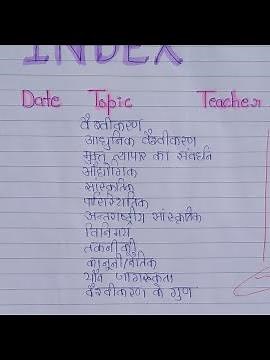 INDEX
Date Topic Teacher
वैश्वीकरण
आधुनिक वैश्वीकरण
मुक्त व्यापार का संवर्धन
औद्योगिक
सांस्कृतिक
पारिस्थितिक
अन्तराष्ट्रीय सांस्कृतिक
विनिमय
तकनीकी
कानूनी/नैतिक
यौन जागरूकता
वैश्वीकरण के गुण